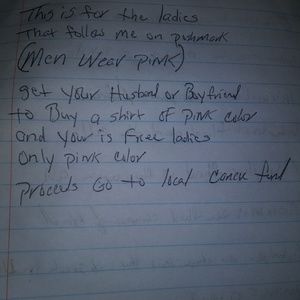 This is for the ladies
That follow me on poshmark
(Men Wear Pink)
get your Husband or Boyfriend
to Buy a shirt of Pink color
and your is Free ladies
only pink color
proceeds Go to local Cancer fund